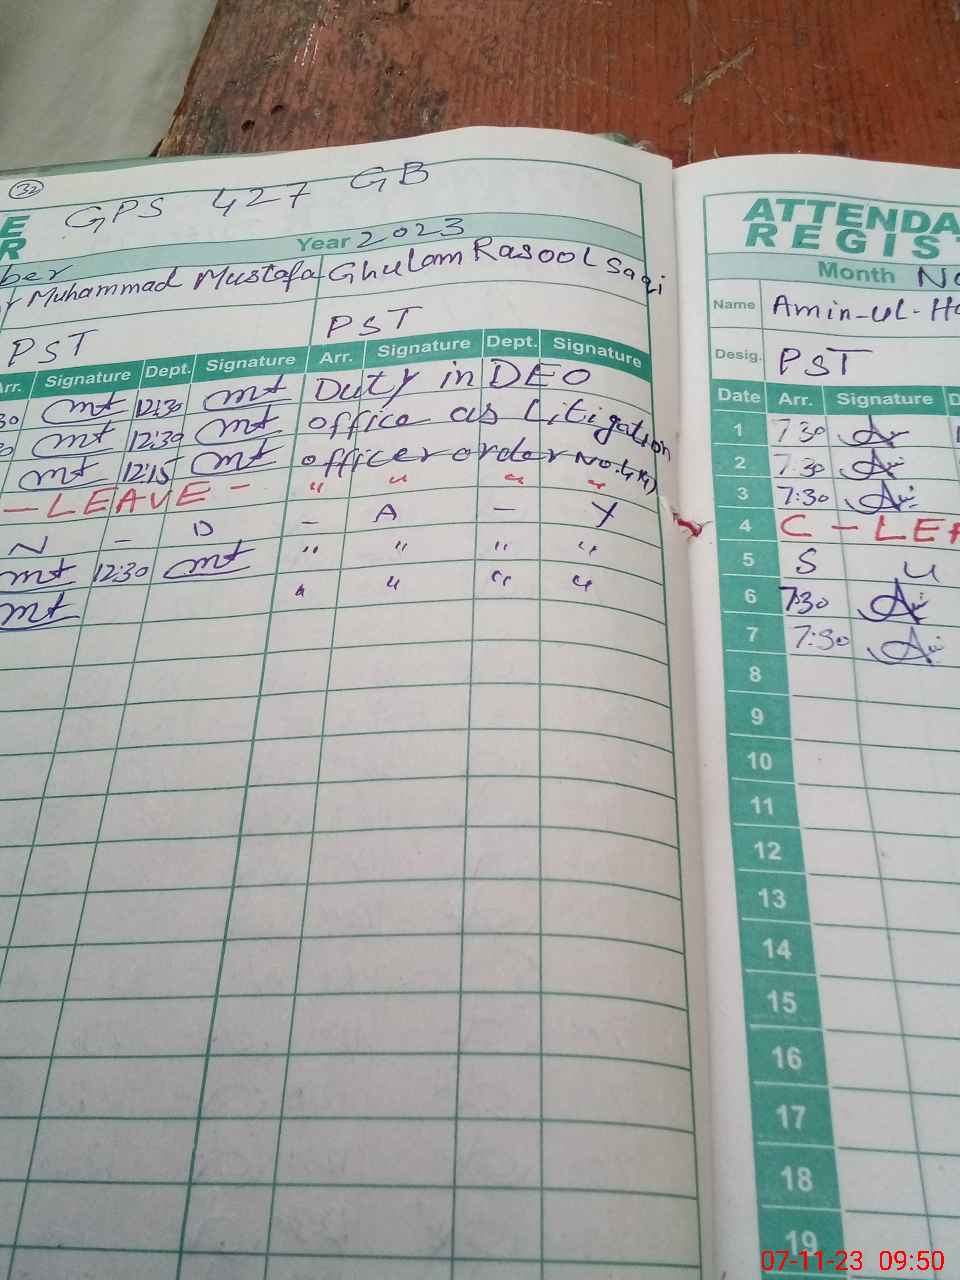 32
GPS 427 GB
E
R
Year 2023
ber
Muhammad Mustafa Ghulam Rasool Saqi
PST PST
Arr. Signature Dept. Signature Arr. Signature Dept. Signature
30 mt 12:30 mt Duty in DEO
mt 12:30 mt office as Litigation
mt 12:15 mt officer order No.
— LEAVE — " " " "
N — D — A — Y
mt 12:30 mt " " " "
mt " " " "
ATTENDA
REGIS
Month No
Name Amin-ul-H
Desig. PST
Date Arr. Signature D
1 7 30
2 7:30
3 7:30
4 C — LEA
5 S U
6 7:30
7 7:30
8
9
10
11
12
13
14
15
16
17
18
19
07-11-23 09:50